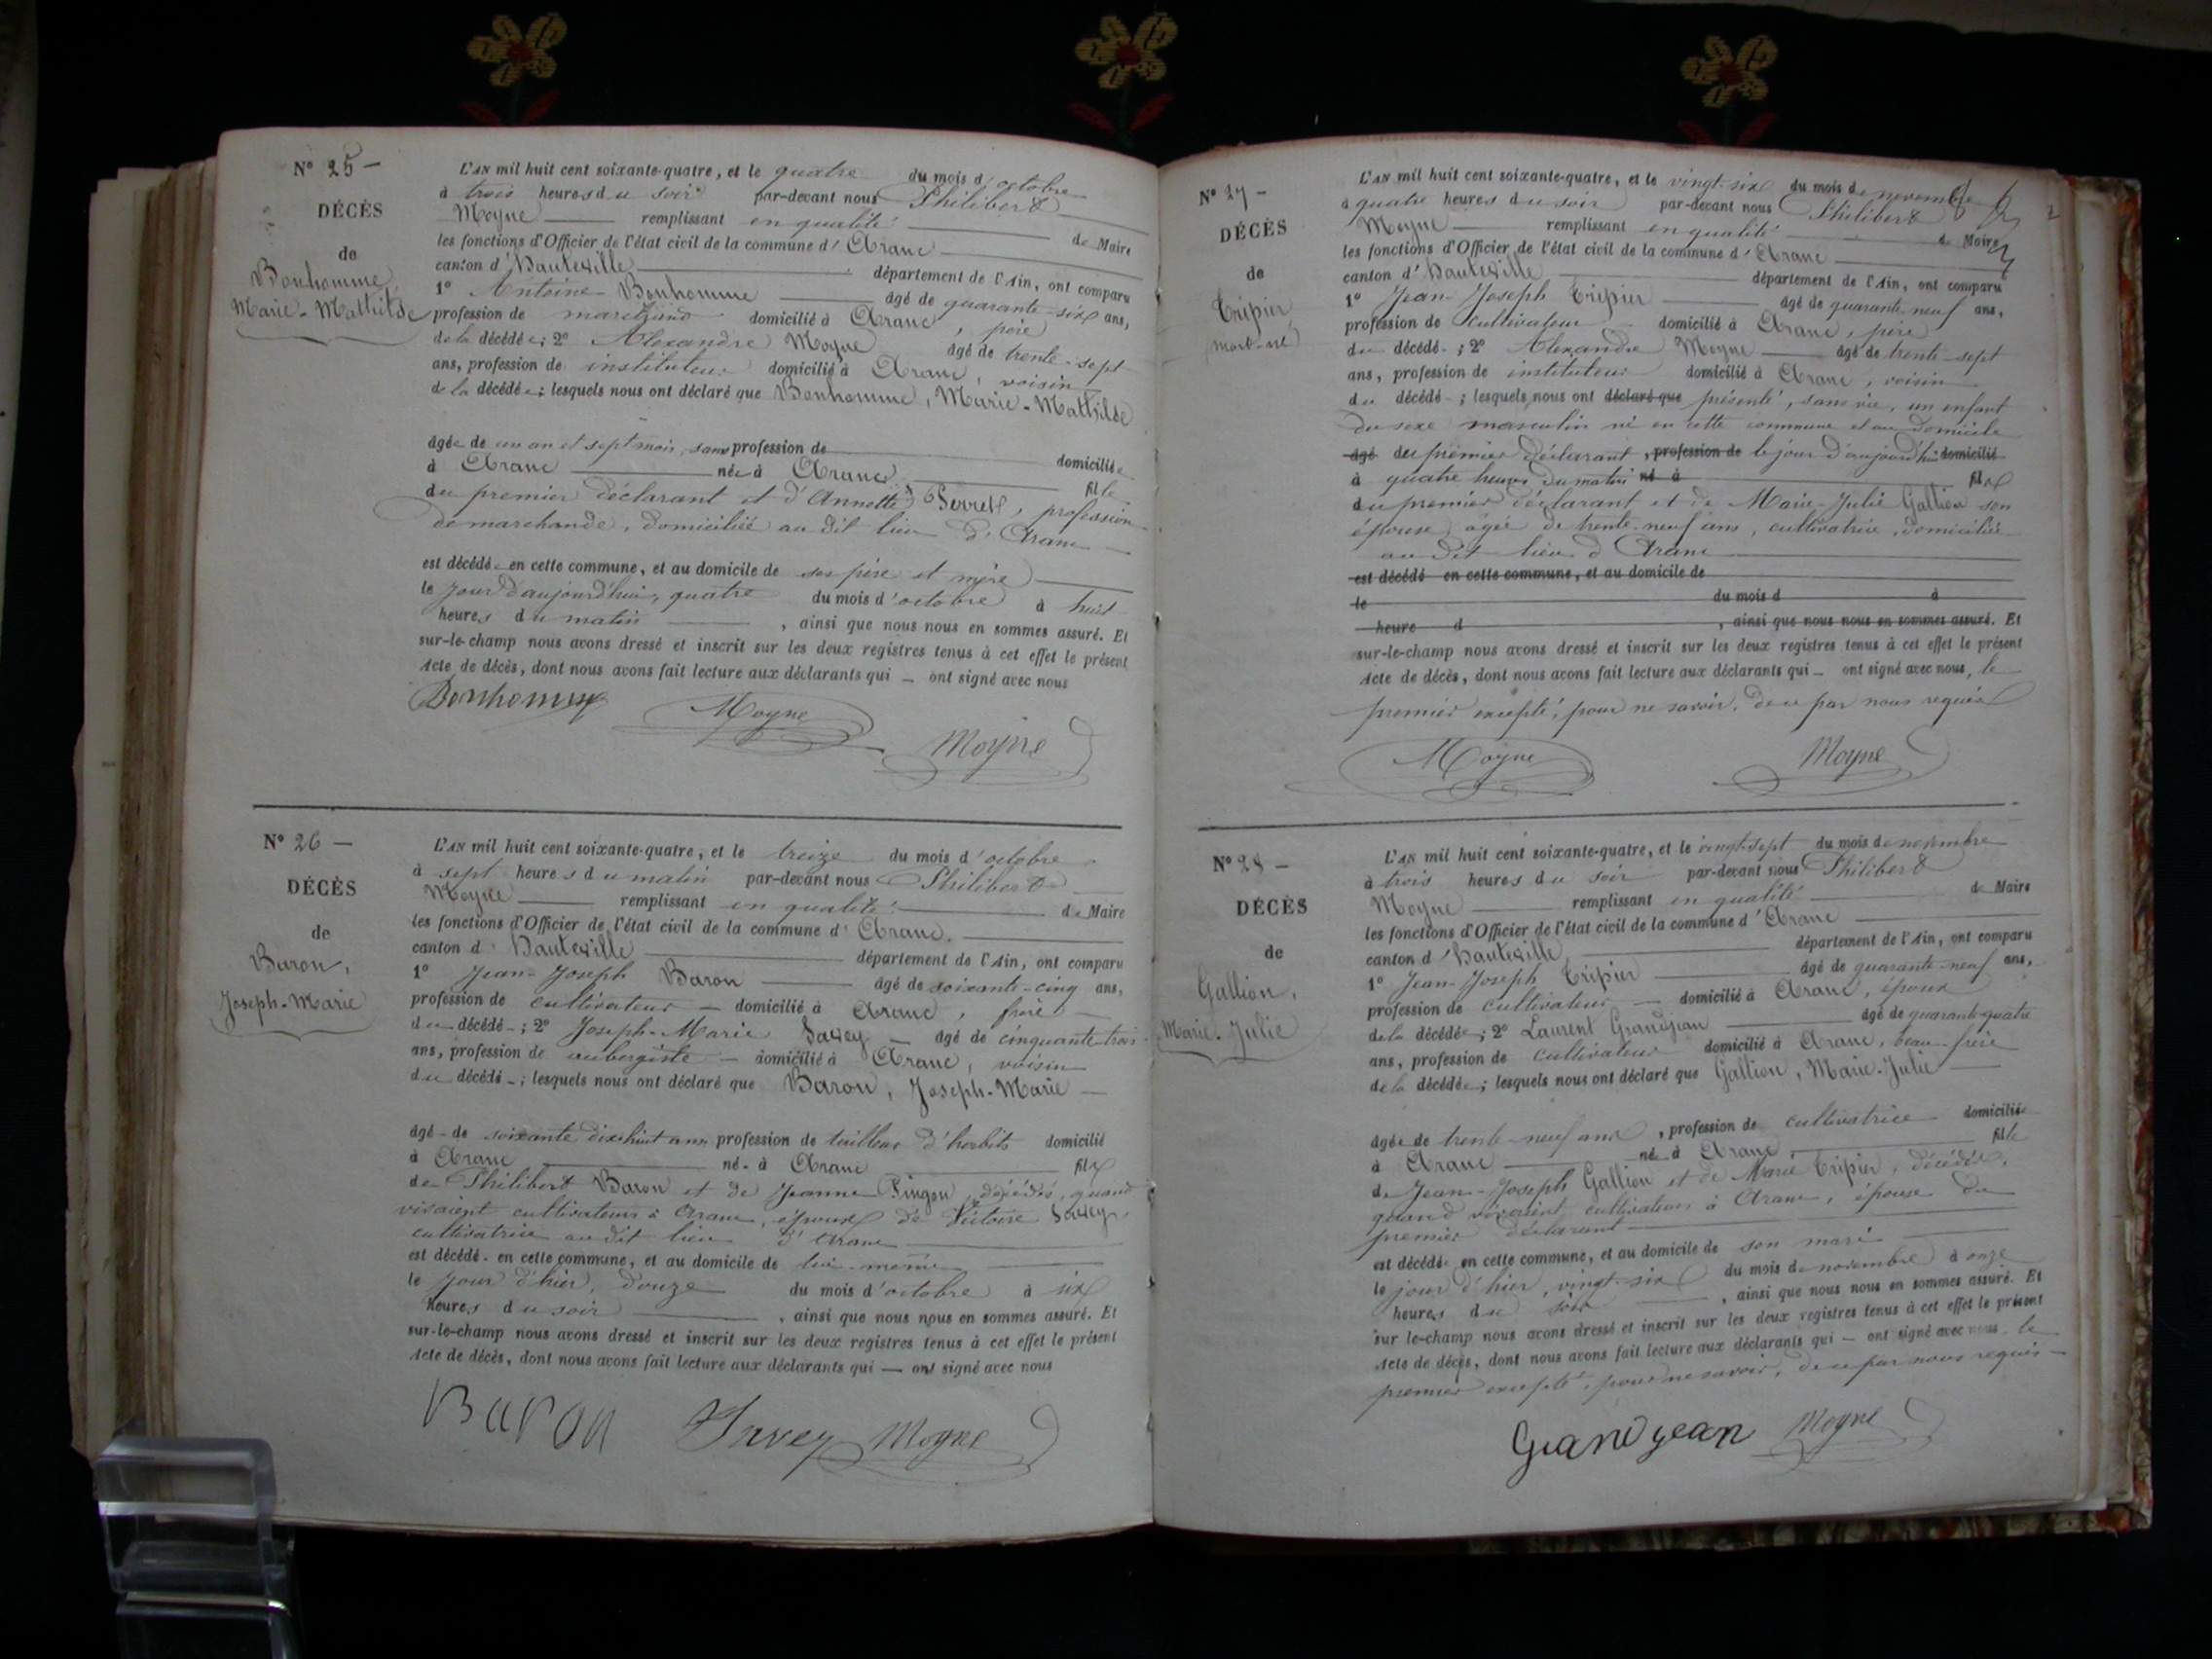 N° 25 —
DÉCÈS
de
Bonhomme
Marie-Mathilde
L'AN mil huit cent soixante-quatre, et le quatre du mois d'octobre
à trois heures du soir par-devant nous Philibert
Moyne remplissant en qualité de Maire
les fonctions d'Officier de l'état civil de la commune d'Aranc
canton d'Hauteville département de l'Ain, ont comparu
1° Antoine Bonhomme âgé de quarante-six ans,
profession de marchand domicilié à Aranc, père
de la décédée; 2° Alexandre Moyne âgé de trente-sept
ans, profession de instituteur domicilié à Aranc, voisin
de la décédée; lesquels nous ont déclaré que Bonhomme, Marie-Mathilde
âgée de un an et sept mois, sans profession de domiciliée
à Aranc née à Aranc fille
du premier déclarant et d'Annette Perret, profession
de marchande, domiciliée au dit lieu d'Aranc
est décédée en cette commune, et au domicile de ses père et mère
le jour d'aujourd'hui, quatre du mois d'octobre à huit
heures du matin, ainsi que nous nous en sommes assuré. Et
sur-le-champ nous avons dressé et inscrit sur les deux registres tenus à cet effet le présent
Acte de décès, dont nous avons fait lecture aux déclarants qui — ont signé avec nous
Bonhomme Moyne Moyne
N° 26 —
DÉCÈS
de
Baron,
Joseph-Marie
L'AN mil huit cent soixante-quatre, et le treize du mois d'octobre
à sept heures du matin par-devant nous Philibert
Moyne remplissant en qualité de Maire
les fonctions d'Officier de l'état civil de la commune d'Aranc.
canton d'Hauteville département de l'Ain, ont comparu
1° Jean-Joseph Baron âgé de soixante-cinq ans,
profession de cultivateur — domicilié à Aranc, frère
du décédé; 2° Joseph-Marie Savey — âgé de cinquante-trois
ans, profession de aubergiste — domicilié à Aranc, voisin
du décédé; lesquels nous ont déclaré que Baron, Joseph-Marie —
âgé de soixante dix-huit ans profession de tailleur d'habits domicilié
à Aranc né à Aranc fils
de Philibert Baron et de Jeanne Pingon, décédés, quand
vivaient cultivateurs à Aranc, époux de Victoire Savey,
cultivatrice au dit lieu d'Aranc
est décédé en cette commune, et au domicile de lui-même
le jour d'hier, douze du mois d'octobre à six
heures du soir, ainsi que nous nous en sommes assuré. Et
sur-le-champ nous avons dressé et inscrit sur les deux registres tenus à cet effet le présent
Acte de décès, dont nous avons fait lecture aux déclarants qui — ont signé avec nous
Baron Savey Moyne
N° 27 —
DÉCÈS
de
Tripier
(mort-né)
L'AN mil huit cent soixante-quatre, et le vingt-six du mois de novembre
à quatre heures du soir par-devant nous Philibert
Moyne remplissant en qualité de Maire
les fonctions d'Officier de l'état civil de la commune d'Aranc
canton d'Hauteville département de l'Ain, ont comparu
1° Jean-Joseph Tripier âgé de quarante neuf ans,
profession de cultivateur — domicilié à Aranc, père
du décédé; 2° Alexandre Moyne âgé de trente-sept
ans, profession de instituteur domicilié à Aranc, voisin
du décédé; lesquels nous ont déclaré que présenté, sans vie, un enfant
du sexe masculin né en cette commune et au domicile
âgé du premier déclarant, profession de le jour d'aujourd'hui domicilié
à quatre heures du matin né à fils
du premier déclarant et de Marie-Julie Gallion son
épouse, âgée de trente-neuf ans, cultivatrice, domiciliée
au dit lieu d'Aranc
est décédé en cette commune, et au domicile de
le du mois d à
heure d, ainsi que nous nous en sommes assuré. Et
sur-le-champ nous avons dressé et inscrit sur les deux registres tenus à cet effet le présent
Acte de décès, dont nous avons fait lecture aux déclarants qui — ont signé avec nous, le
premier excepté, pour ne savoir, de ce par nous requis
Moyne Moyne
N° 28 —
DÉCÈS
de
Gallion,
Marie-Julie
L'AN mil huit cent soixante-quatre, et le vingt-sept du mois de novembre
à trois heures du soir par-devant nous Philibert
Moyne remplissant en qualité de Maire
les fonctions d'Officier de l'état civil de la commune d'Aranc
canton d'Hauteville département de l'Ain, ont comparu
1° Jean-Joseph Tripier âgé de quarante-neuf ans,
profession de cultivateur — domicilié à Aranc, époux
de la décédée; 2° Laurent Grandjean âgé de quarante-quatre
ans, profession de cultivateur domicilié à Aranc, beau-frère
de la décédée; lesquels nous ont déclaré que Gallion, Marie-Julie
âgée de trente-neuf ans, profession de cultivatrice domiciliée
à Aranc née à Aranc, fille
de Jean-Joseph Gallion et de Marie Tripier, décédés,
quand vivaient cultivateurs à Aranc, épouse du
premier déclarant
est décédée en cette commune, et au domicile de son mari
le jour d'hier, vingt-six du mois de novembre à onze
heures du soir, ainsi que nous nous en sommes assuré. Et
sur le-champ nous avons dressé et inscrit sur les deux registres tenus à cet effet le présent
Acte de décès, dont nous avons fait lecture aux déclarants qui — ont signé avec nous, le
premier excepté, pour ne savoir, de ce par nous requis —
Grandjean Moyne